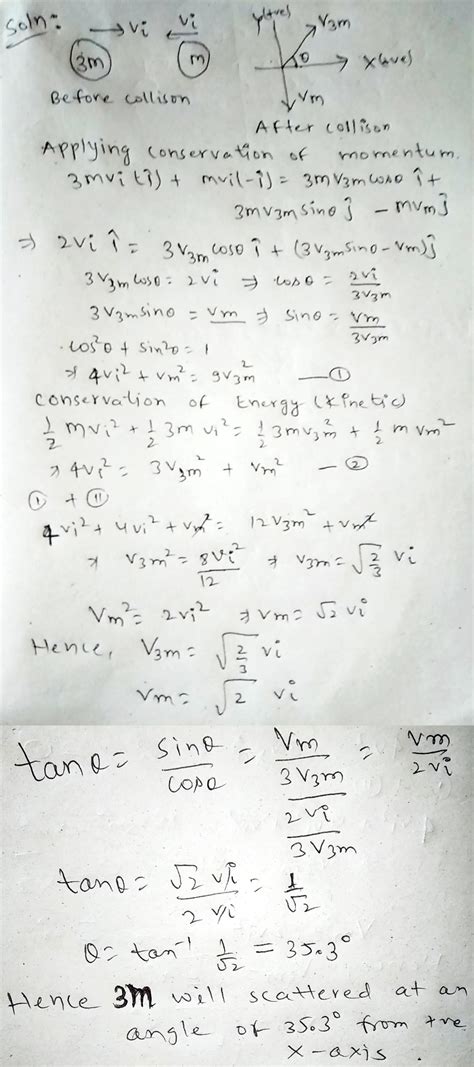 Soln:
→ vi vi ←
3m m
Before collison
y(+ve)
V3m
θ
X(+ve)
Vm
After collison
Applying conservation of momentum.
3mvi (î) + mvi(-î) = 3mV3m cosθ î +
3mV3m sinθ ĵ - mVm ĵ
⇒ 2vi î = 3V3m cosθ î + (3V3m sinθ - Vm) ĵ
3V3m cosθ = 2vi ⇒ cosθ = 2vi / 3V3m
3V3m sinθ = Vm ⇒ sinθ = Vm / 3V3m
cos²θ + sin²θ = 1
⇒ 4vi² + Vm² = 9V3m² — ①
Conservation of Energy (Kinetic)
1/2 mvi² + 1/2 3m vi² = 1/2 3mV3m² + 1/2 m Vm²
⇒ 4vi² = 3V3m² + Vm² — ②
① + ⑪
4vi² + 4vi² + Vm² = 12V3m² + Vm²
⇒ V3m² = 8vi² / 12 ⇒ V3m = √(2/3) vi
Vm² = 2vi² ⇒ Vm = √2 vi
Hence, V3m = √(2/3) vi
Vm = √2 vi
tanθ = sinθ / cosθ = (Vm / 3V3m) / (2vi / 3V3m) = Vm / 2vi
tanθ = √2 vi / 2 vi = 1 / √2
θ = tan⁻¹ 1/√2 = 35.3°
Hence 3M will scattered at an
angle of 35.3° from +ve
x-axis.